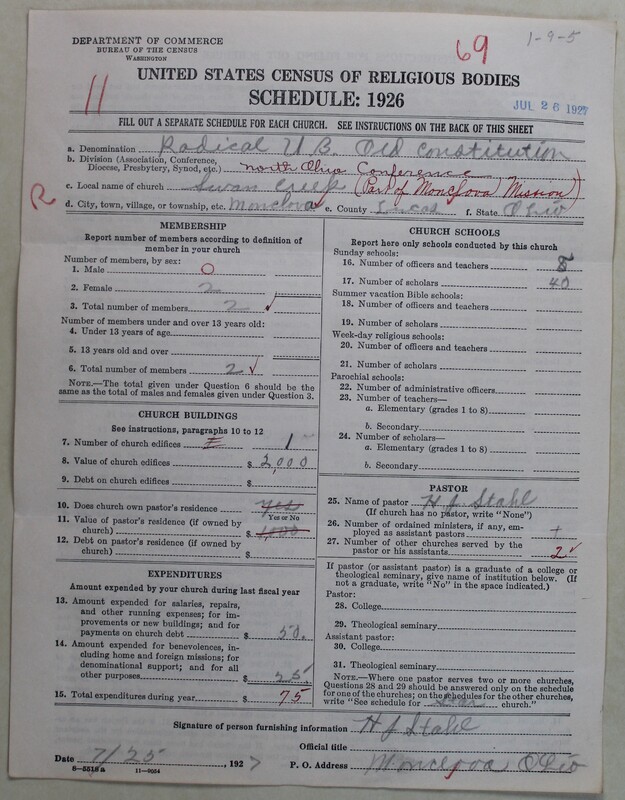 DEPARTMENT OF COMMERCE
BUREAU OF THE CENSUS
WASHINGTON
69
1-9-5
11
UNITED STATES CENSUS OF RELIGIOUS BODIES
SCHEDULE: 1926
JUL 26 1927
FILL OUT A SEPARATE SCHEDULE FOR EACH CHURCH. SEE INSTRUCTIONS ON THE BACK OF THIS SHEET
a. Denomination Radical U.B. Old Constitution
b. Division (Association, Conference,
Diocese, Presbytery, Synod, etc.) North Ohio Conference
c. Local name of church Swan Creek (Part of Monclova Mission)
R
d. City, town, village, or township, etc. Monclova e. County Lucas f. State Ohio
MEMBERSHIP
Report number of members according to definition of
member in your church
Number of members, by sex:
1. Male 0
2. Female 2
3. Total number of members 2 ✓
Number of members under and over 13 years old:
4. Under 13 years of age
5. 13 years old and over
6. Total number of members 2 ✓
NOTE.—The total given under Question 6 should be the
same as the total of males and females given under Question 3.
CHURCH BUILDINGS
See instructions, paragraphs 10 to 12
7. Number of church edifices 1
8. Value of church edifices $ 2,000
9. Debt on church edifices $
10. Does church own pastor's residence yes
Yes or No
11. Value of pastor's residence (if owned by
church) $
12. Debt on pastor's residence (if owned by
church) $
EXPENDITURES
Amount expended by your church during last fiscal year
13. Amount expended for salaries, repairs,
and other running expenses; for im-
provements or new buildings; and for
payments on church debt $ 50.
14. Amount expended for benevolences, in-
cluding home and foreign missions; for
denominational support; and for all
other purposes $ 25
15. Total expenditures during year $ 75
CHURCH SCHOOLS
Report here only schools conducted by this church
Sunday schools:
16. Number of officers and teachers 8
17. Number of scholars 40
Summer vacation Bible schools:
18. Number of officers and teachers
19. Number of scholars
Week-day religious schools:
20. Number of officers and teachers
21. Number of scholars
Parochial schools:
22. Number of administrative officers
23. Number of teachers—
a. Elementary (grades 1 to 8)
b. Secondary
24. Number of scholars—
a. Elementary (grades 1 to 8)
b. Secondary
PASTOR
25. Name of pastor H J Stahl
(If church has no pastor, write "None")
26. Number of ordained ministers, if any, em-
ployed as assistant pastors
27. Number of other churches served by the
pastor or his assistants 2 ✓
If pastor (or assistant pastor) is a graduate of a college or
theological seminary, give name of institution below. (If
not a graduate, write "No" in the space indicated.)
Pastor:
28. College
29. Theological seminary
Assistant pastor:
30. College
31. Theological seminary
NOTE.—Where one pastor serves two or more churches,
Questions 28 and 29 should be answered only on the schedule
for one of the churches; on the schedules for the other churches,
write "See schedule for church."
Signature of person furnishing information H J Stahl
Official title
Date 7/25, 1927 P. O. Address Monclova Ohio
8-5518a 11-9054